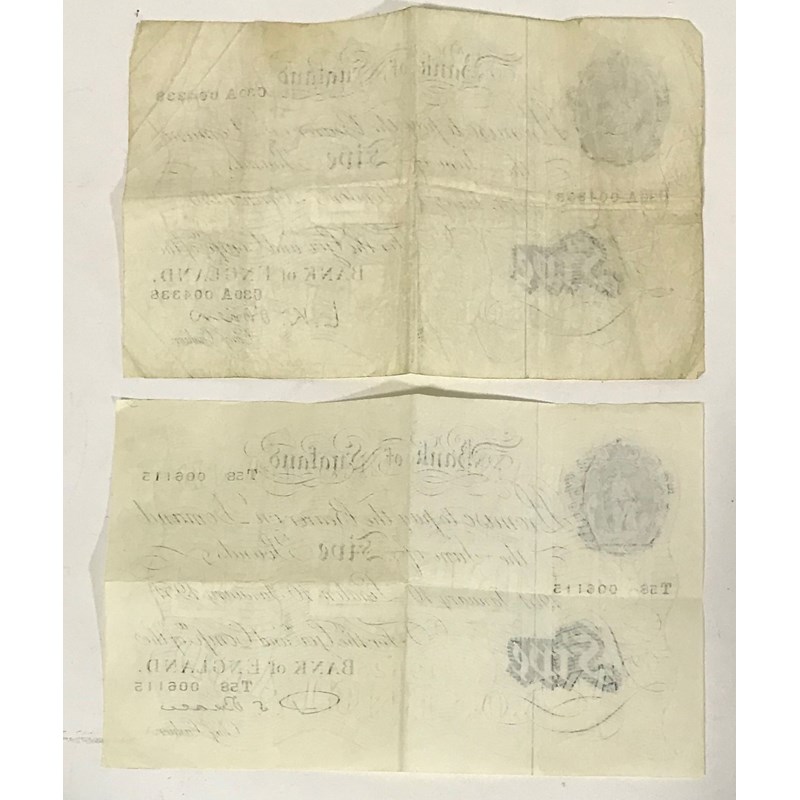 Bank of England
C30A 004336
Promise to pay the Bearer on Demand
the Sum of Five Pounds
C30A 004336
For the Govr. and Compa. of the
BANK of ENGLAND.
C30A 004336
Five
Chief Cashier
Bank of England
T58 006115
Promise to pay the Bearer on Demand
the Sum of Five Pounds
T58 006115
January 10 London 10 January
For the Govr. and Compa. of the
BANK of ENGLAND.
T58 006115
Five
Chief Cashier